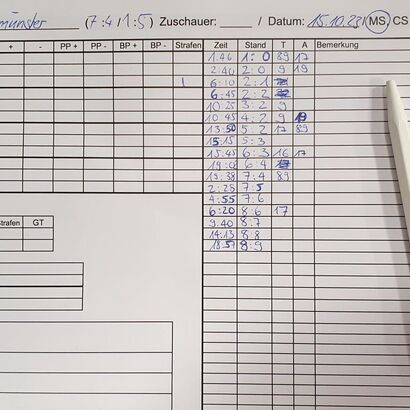 münster (7:4/1:5) Zuschauer: / Datum: 15.10.23 (MS) CS
+ - PP + PP - BP + BP - Strafen Zeit Stand T A Bemerkung
1:46 1:0 89 17
2:40 2:0 9 19
I 6:10 2:1
6:45 2:2
10:25 3:2 9
10:45 4:2 9 19
13:50 5:2 17 89
15:15 5:3
15:45 6:3 16 17
6:4
19:38 7:4 89
2:28 7:5
4:55 7:6
trafen GT 6:20 8:6 17
9:40 8:7
14:13 8:8
18:57 8:9